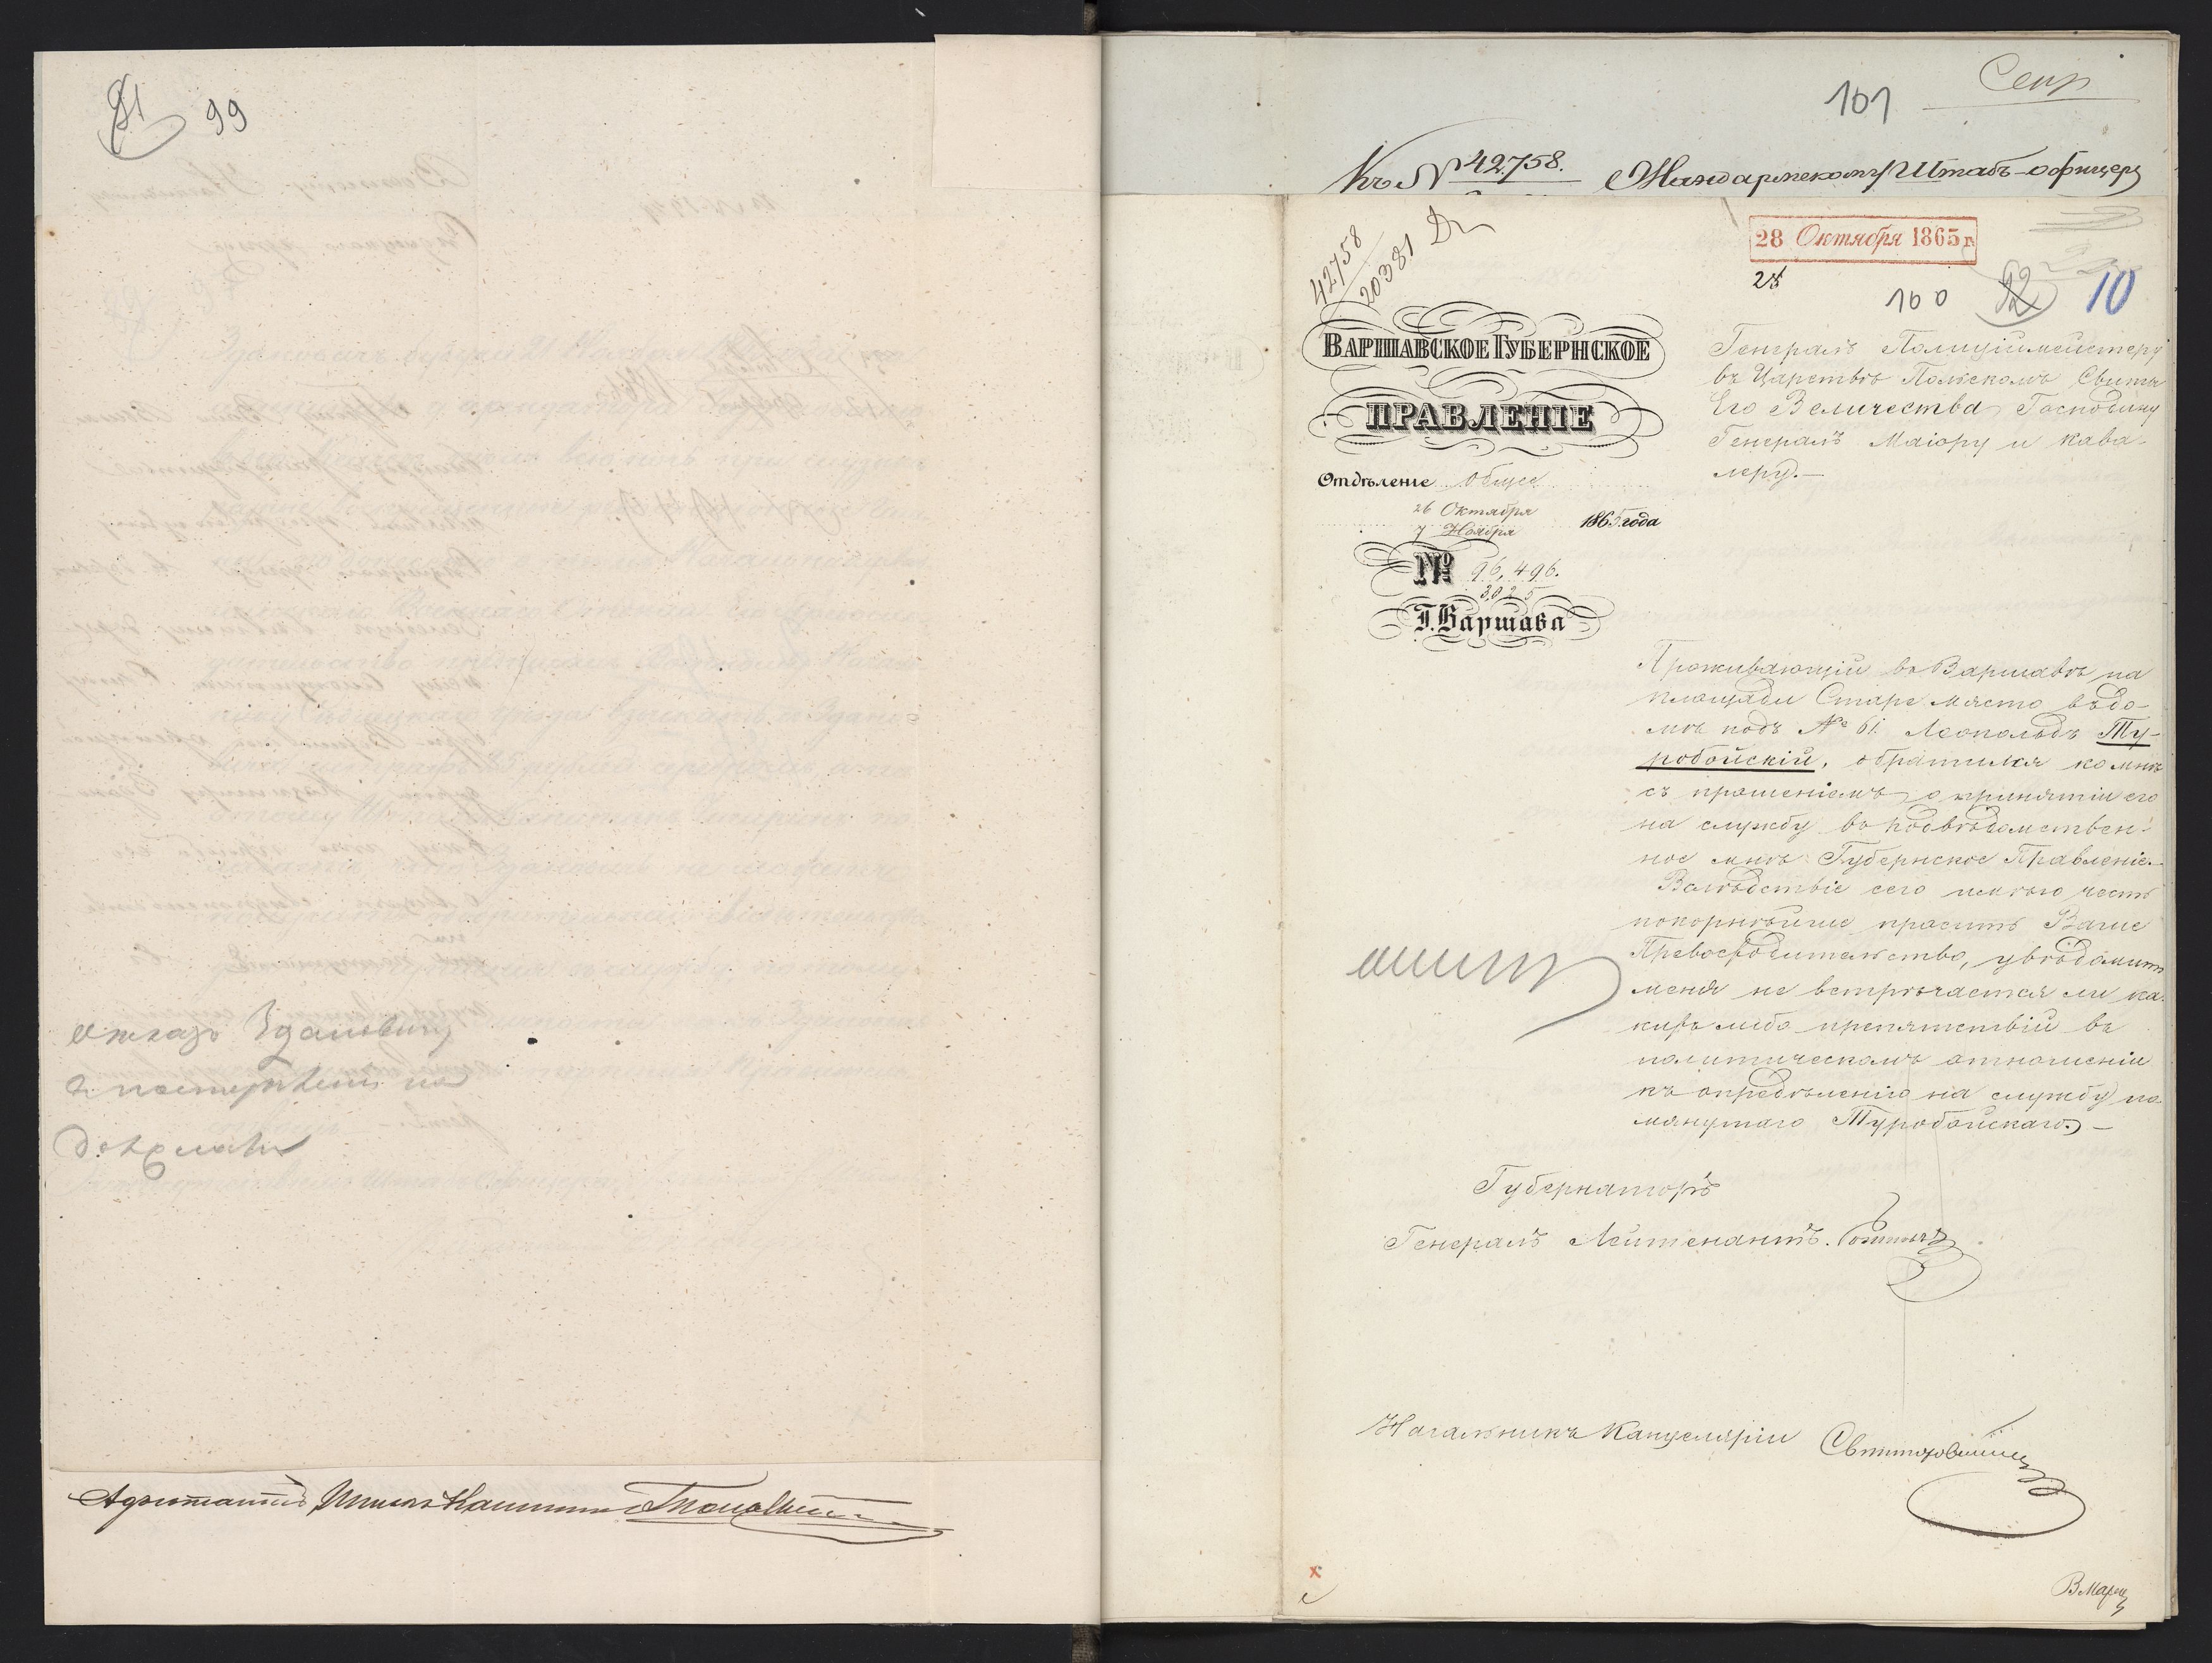 91 99
отказъ Здановичу
Адъютантъ
101
Къ № 42758. Жандармскому Штабъ-офицеру
42758
20381
28 Октября 1865 г.
100 92 10
ВАРШАВСКОЕ ГУБЕРНСКОЕ
ПРАВЛЕНІЕ
Отдѣленіе Общее
26 Октября
7 Ноября 1865 года
№ 96,496.
3025
Г. Варшава
Генералъ Полиціймейстеру
въ Царствѣ Польскомъ Свиты
Его Величества Господину
Генералъ Маіору и Кава-
леру.—
Проживающій въ Варшавѣ на
площади Старе Място въ до-
мѣ подъ № 61. Леопольдъ Ту-
робойскій, обратился ко мнѣ
съ прошеніемъ о принятіи его
на службу въ подвѣдомствен-
ное мнѣ Губернское Правленіе.—
Вслѣдствіе сего имѣю честь
покорнѣйше просить Ваше
Превосходительство, увѣдомить
меня не встрѣчается ли ка-
кихъ либо препятствій въ
политическомъ отношеніи
къ опредѣленію на службу по-
мянутаго Туробойскаго.—
Губернаторъ
Генералъ Лейтенантъ.
Начальникъ Канцеляріи